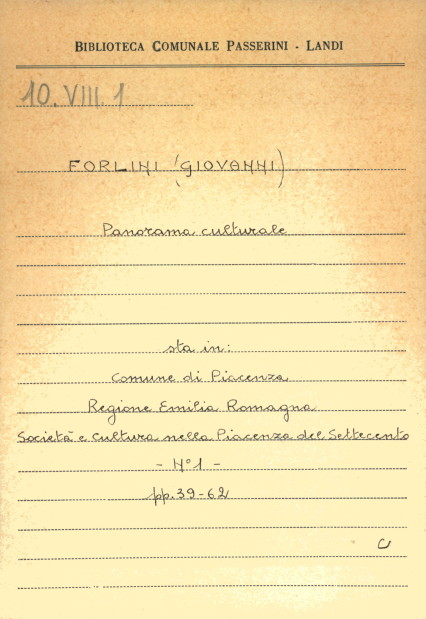 BIBLIOTECA COMUNALE PASSERINI - LANDI
10. VIII. 1
FORLINI (GIOVANNI)
Panorama culturale
sta in:
Comune di Piacenza
Regione Emilia Romagna
Società e Cultura nella Piacenza del Settecento
- N° 1 -
pp. 39-62
C